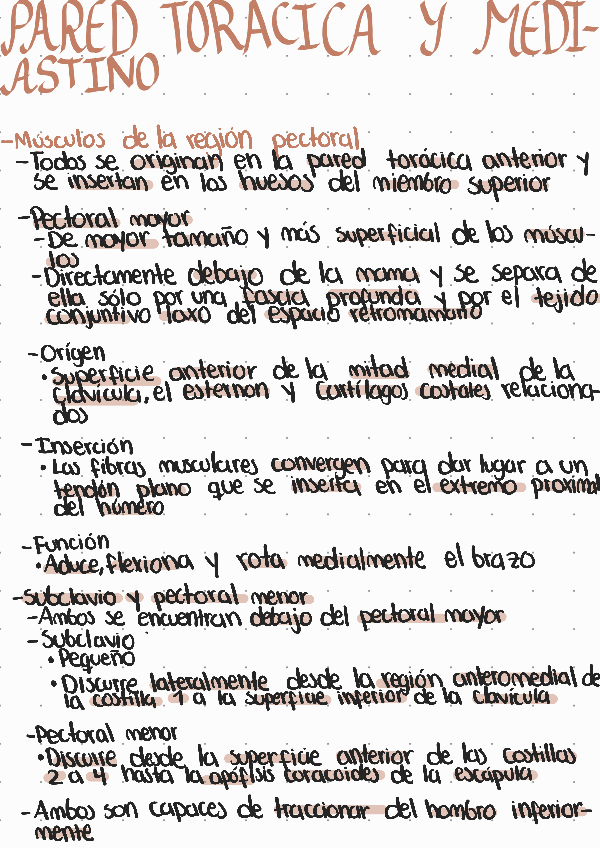 PARED TORACICA Y MEDI-
ASTINO
-Músculos de la región pectoral
-Todos se originan en la pared torácica anterior y
se insertan en los huesos del miembro superior
-Pectoral mayor
-De mayor tamaño y más superficial de los múscu-
los
-Directamente debajo de la mama y se separa de
ella sólo por una fascia profunda y por el tejido
conjuntivo laxo del espacio retromamario
-Origen
•Superficie anterior de la mitad medial de la
clavícula, el esternon y cartílagos costales relaciona-
dos
-Inserción
•Las fibras musculares convergen para dar lugar a un
tendón plano que se inserta en el extremo proximal
del húmero
-Función
•Aduce, flexiona y rota medialmente el brazo
-Subclavio y pectoral menor
-Ambos se encuentran debajo del pectoral mayor
-Subclavio
•Pequeño
•Discurre lateralmente desde la región anteromedial de
la costilla 1 a la superficie inferior de la clavícula
-Pectoral menor
•Discurre desde la superficie anterior de las costillas
2 a 4 hasta la apófisis coracoides de la escápula
-Ambos son capaces de traccionar del hombro inferior-
mente